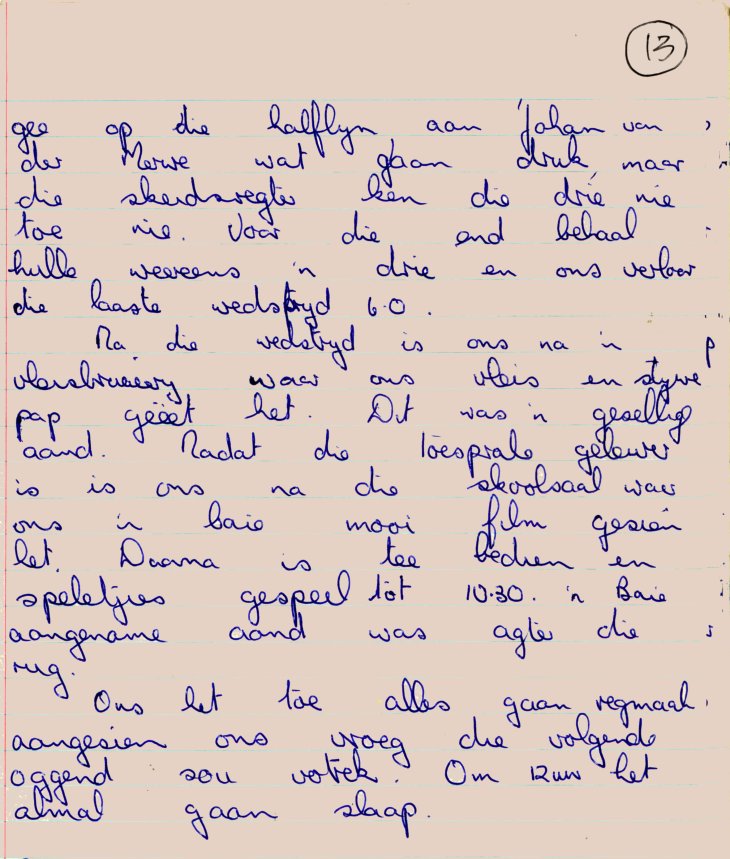 13
gee op die halflyn aan Johan van
der Merwe wat gaan druk maar
die skeidsregter ken die drie nie
toe nie. Voor die end behaal
hulle weereens 'n drie en ons verloor
die laaste wedstryd 6.0.
Na die wedstryd is ons na 'n
vleisbraaiery waar ons vleis en stywe
pap geëet het. Dit was 'n gesellig
aand. Nadat die toesprake gelewer
is is ons na die skoolsaal waar
ons 'n baie mooi film gesien
het. Daarna is tee bedien en
speletjies gespeel tot 10.30. 'n Baie
aangename aand was agter die
rug.
Ons het toe alles gaan regmaak
aangesien ons vroeg die volgende
oggend sou votrek. Om 12uur het
almal gaan slaap.